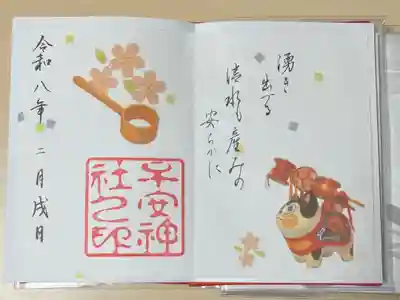 湧き
出づる
清水も産みの
安らかに
子安神
社之印
令和八年 二月戌日